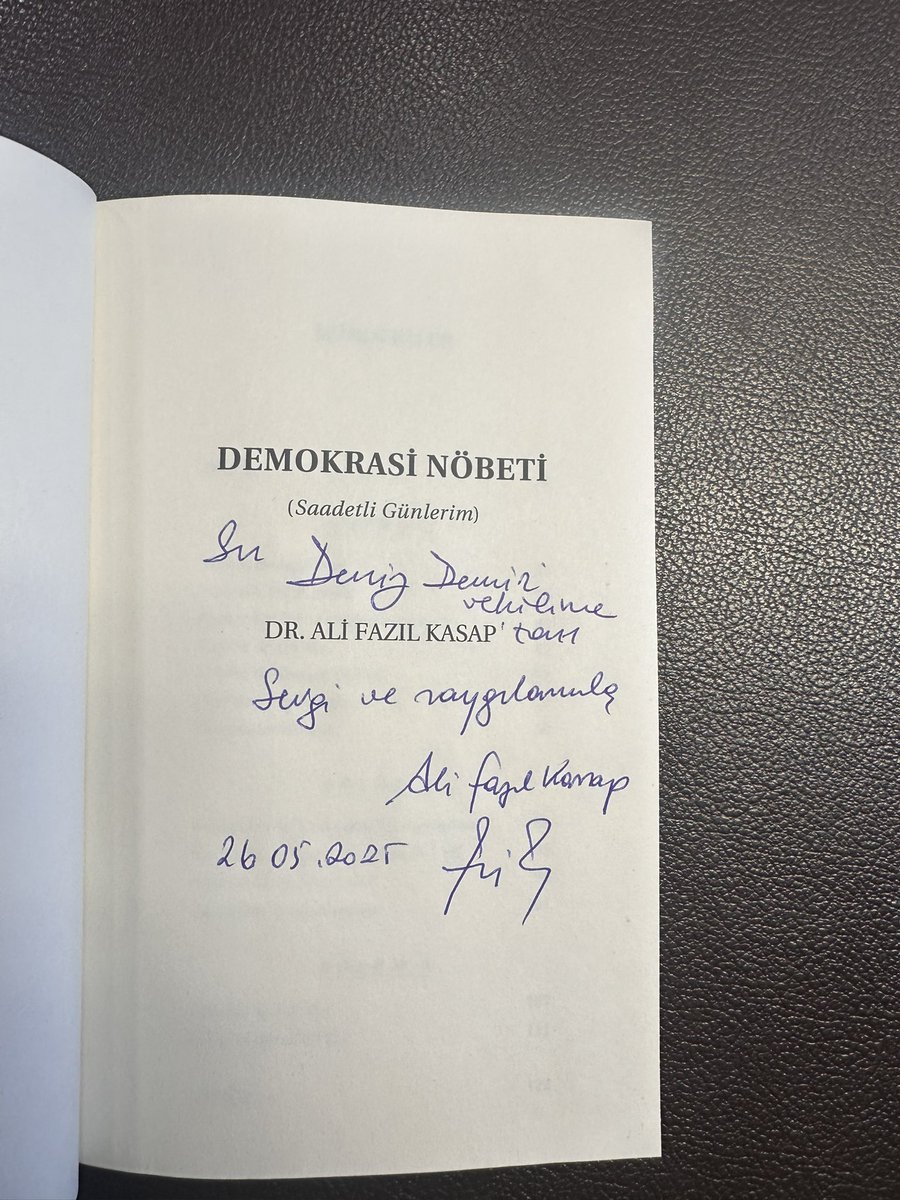 DEMOKRASİ NÖBETİ
(Saadetli Günlerim)
Sn Deniz Demir
vekilime
DR. ALİ FAZIL KASAP 'tan
Sevgi ve saygılarımla
Ali Fazıl Kasap
26 05.2025